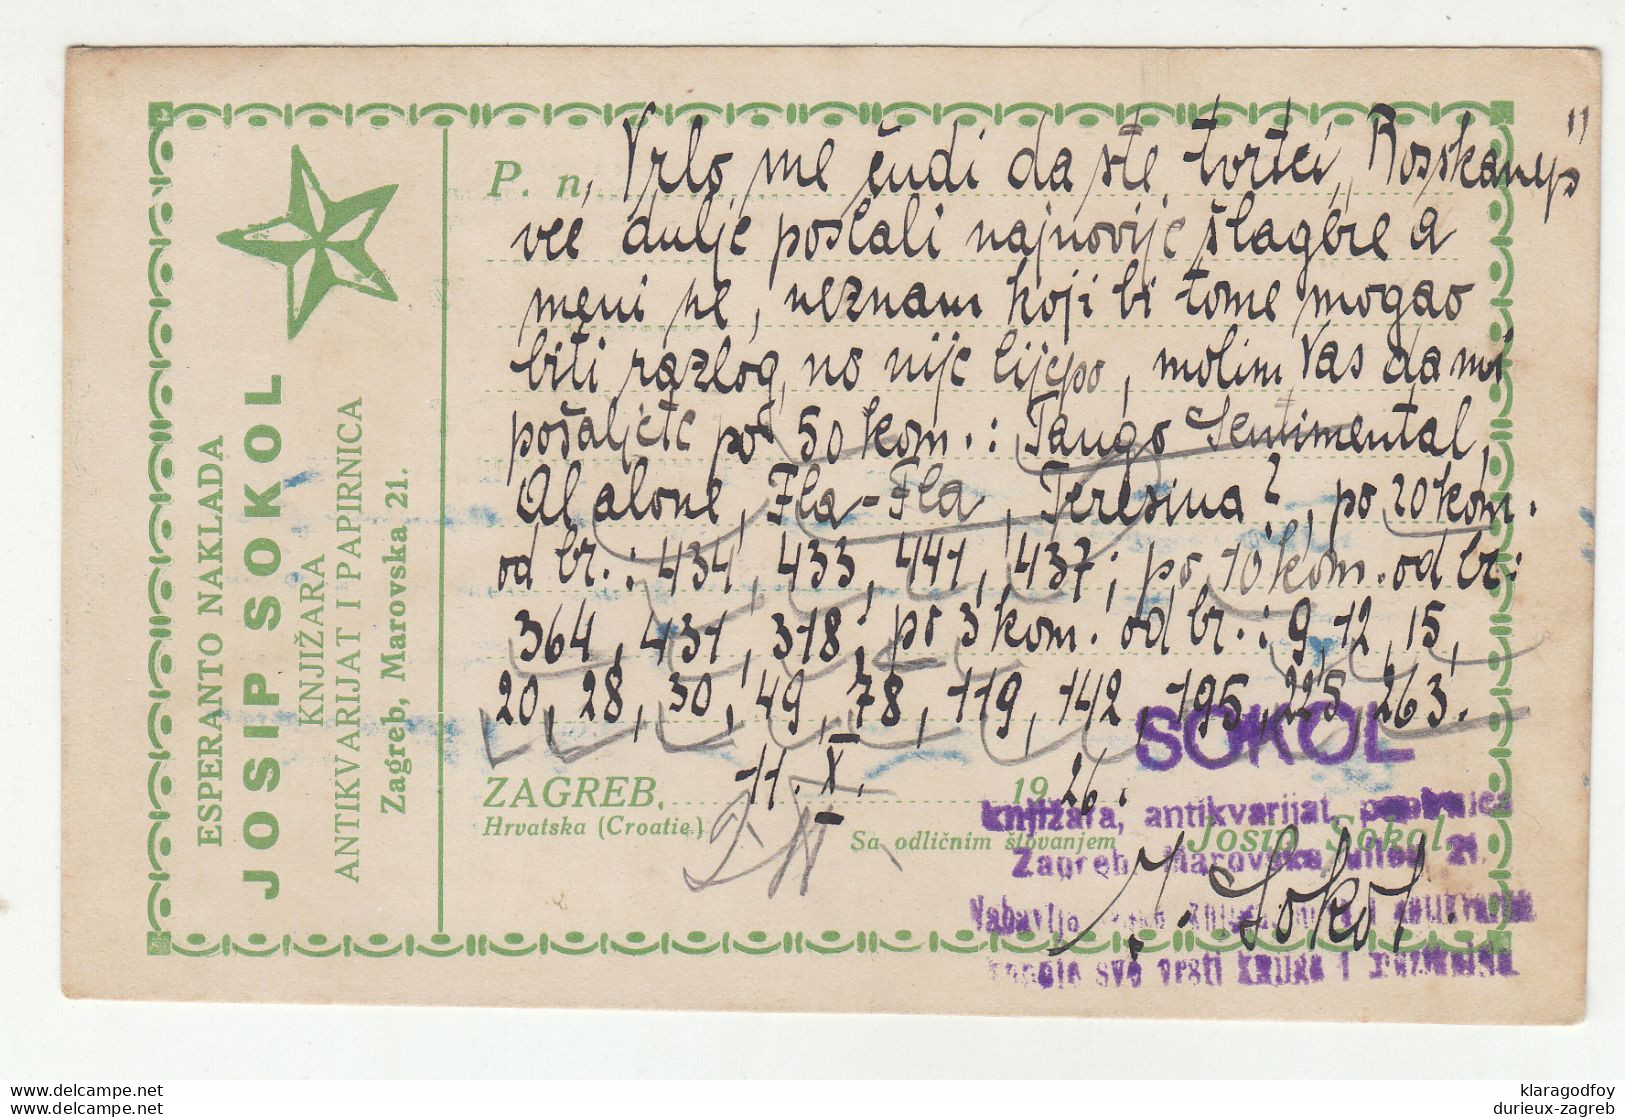 ESPERANTO NAKLADA
JOSIP SOKOL
KNJIŽARA
ANTIKVARIJAT I PAPIRNICA
Zagreb, Marovska 21.
P. n. Vrlo me čudi da ste tvrtci „Bosskaneys"
već dulje poslali najnovije šlagere a
meni ne, neznam koji bi tome mogao
biti razlog, no nije lijepo, molim Vas da mi
pošaljete po 50 kom.: Tango Sentimental,
Al alone, Fla-Fla, Teresina?, po 20 kom.
od br.: 434, 433, 441, 437; po 10 kom. od br:
364, 431, 318; po 3 kom. od br.: 9, 12, 15,
20, 28, 30, 49, 78, 119, 142, 195, 225, 263.
ZAGREB, 11. X. 1926.
Hrvatska (Croatie)
Sa odličnim štovanjem
Josip Sokol
SOKOL
knjižara, antikvarijat, papirnica
Zagreb, Marovska ulica 21.
J. Sokol.
sve vrsti knjiga i
klaragodfoy
delcampe.net
durieux-zagreb
delcampe.net